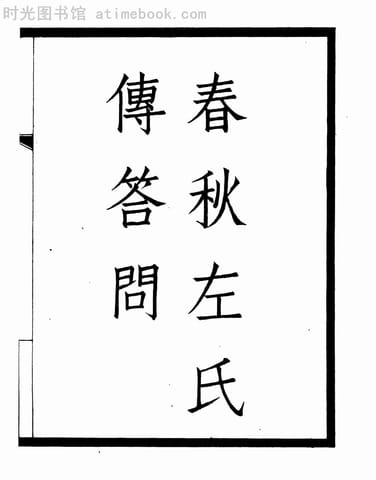 时光图书馆 atimebook.com
春秋左氏
傳答問